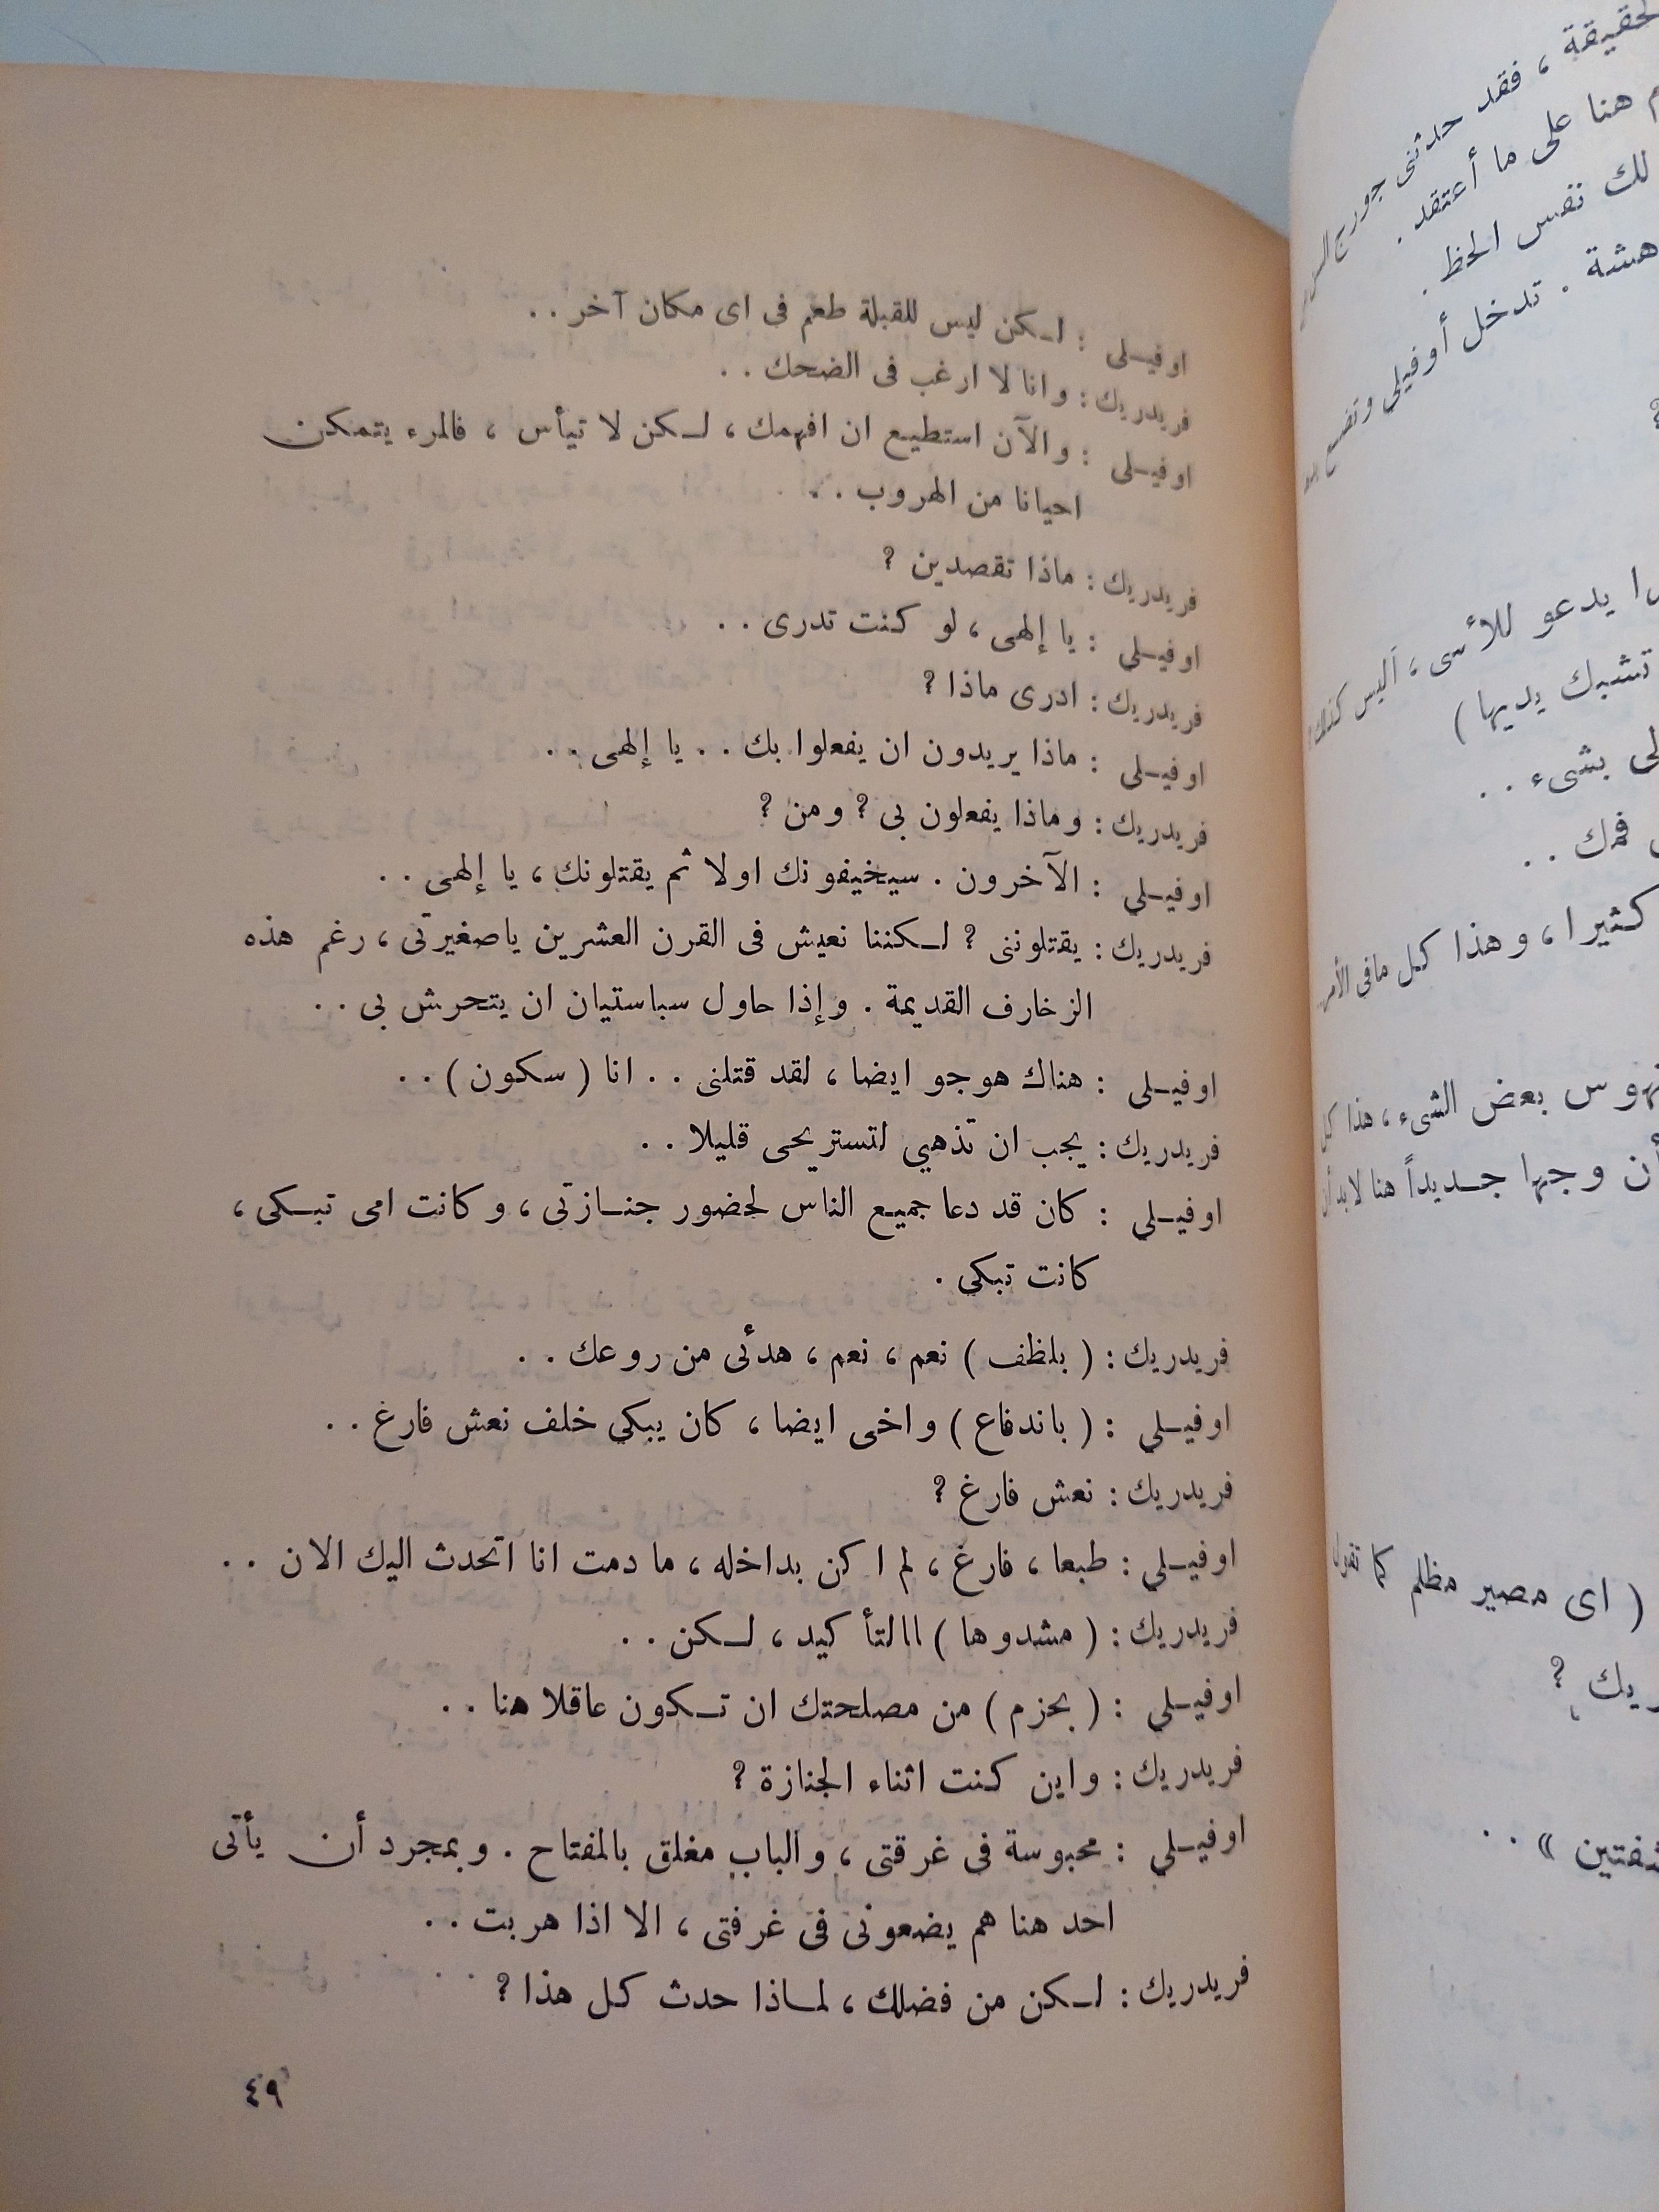 اوفيـلى : لـكن ليس للقبلة طعم فى اى مكان آخر . .
فريدريك : وانا لا ارغب فى الضحك . .
اوفيـلى : والآن استطيع ان افهمك ، لـكن لا تيأس ، فالمرء يتمكن
احيانا من الهروب . .
فريدريك : ماذا تقصدين ؟
اوفيـلى : يا إلهى ، لو كنت تدرى . .
فريدريك : ادرى ماذا ؟
اوفيـلى : ماذا يريدون ان يفعلوا بك . . يا إلهى . .
فريدريك : وماذا يفعلون بى ؟ ومن ؟
اوفيـلى : الآخرون . سيخيفونك اولا ثم يقتلونك ، يا إلهى . .
فريدريك : يقتلوننى ؟ لـكننا نعيش فى القرن العشرين ياصغيرتى ، رغم هذه
الزخارف القديمة . وإذا حاول سباستيان ان يتحرش بى . .
اوفيـلى : هناك هوجو ايضا ، لقد قتلنى . . انا ( سكون ) . .
فريدريك : يجب ان تذهبي لتستريحى قليلا . .
اوفيـلي : كان قد دعا جميع الناس لحضور جنـازتى ، وكانت امى تبـكى ،
كانت تبكي .
فريدريك : ( بلظف ) نعم ، نعم ، هدئى من روعك . .
اوفيـلي : ( باندفاع ) واخى ايضا ، كان يبكي خلف نعش فارغ . .
فريدريك : نعش فارغ ؟
اوفيـلي : طبعا ، فارغ ، لم اكن بداخله ، ما دمت انا اتحدث اليك الان . .
فريدريك : ( مشدوها ) االتأكيد ، لـكن . .
اوفيـلي : ( بحزم ) من مصلحتك ان تـكون عاقلا هنا . .
فريدريك : واين كنت اثناء الجنازة ؟
اوفيـلي : محبوسة فى غرقتى ، والباب مغلق بالمفتاح . وبمجرد أن يأتى
احد هنا هم يضعونى فى غرفتى ، الا اذا هربت . .
فريدريك : لـكن من فضلك ، لمـاذا حدث كل هذا ؟
٤٩
فقد حدثنى جورج
هنا على ما أعتقد .
لك نفس الحظ .
تدخل أوفيلي
يدعو للأسى ، أليس كذلك
تشبك يديها )
بشىء . .
فمك . .
كثيرا ، وهذا كل مافى الأمر
بعض الشىء ، هذا كل
وجها جـديداً هنا لابد أن
( اى مصير مظلم كما تقول